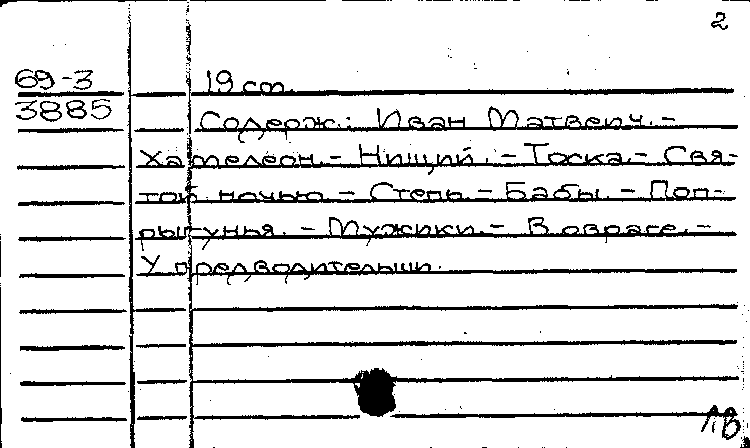 2
69-3
3885
19 см.
Содерж.: Иван Матвеич.-
Хамелеон.- Нищий.- Тоска.- Свя-
той ночью.- Степь.- Бабы.- Поп-
рыгунья.- Мужики.- В овраге.-
У предводительши.